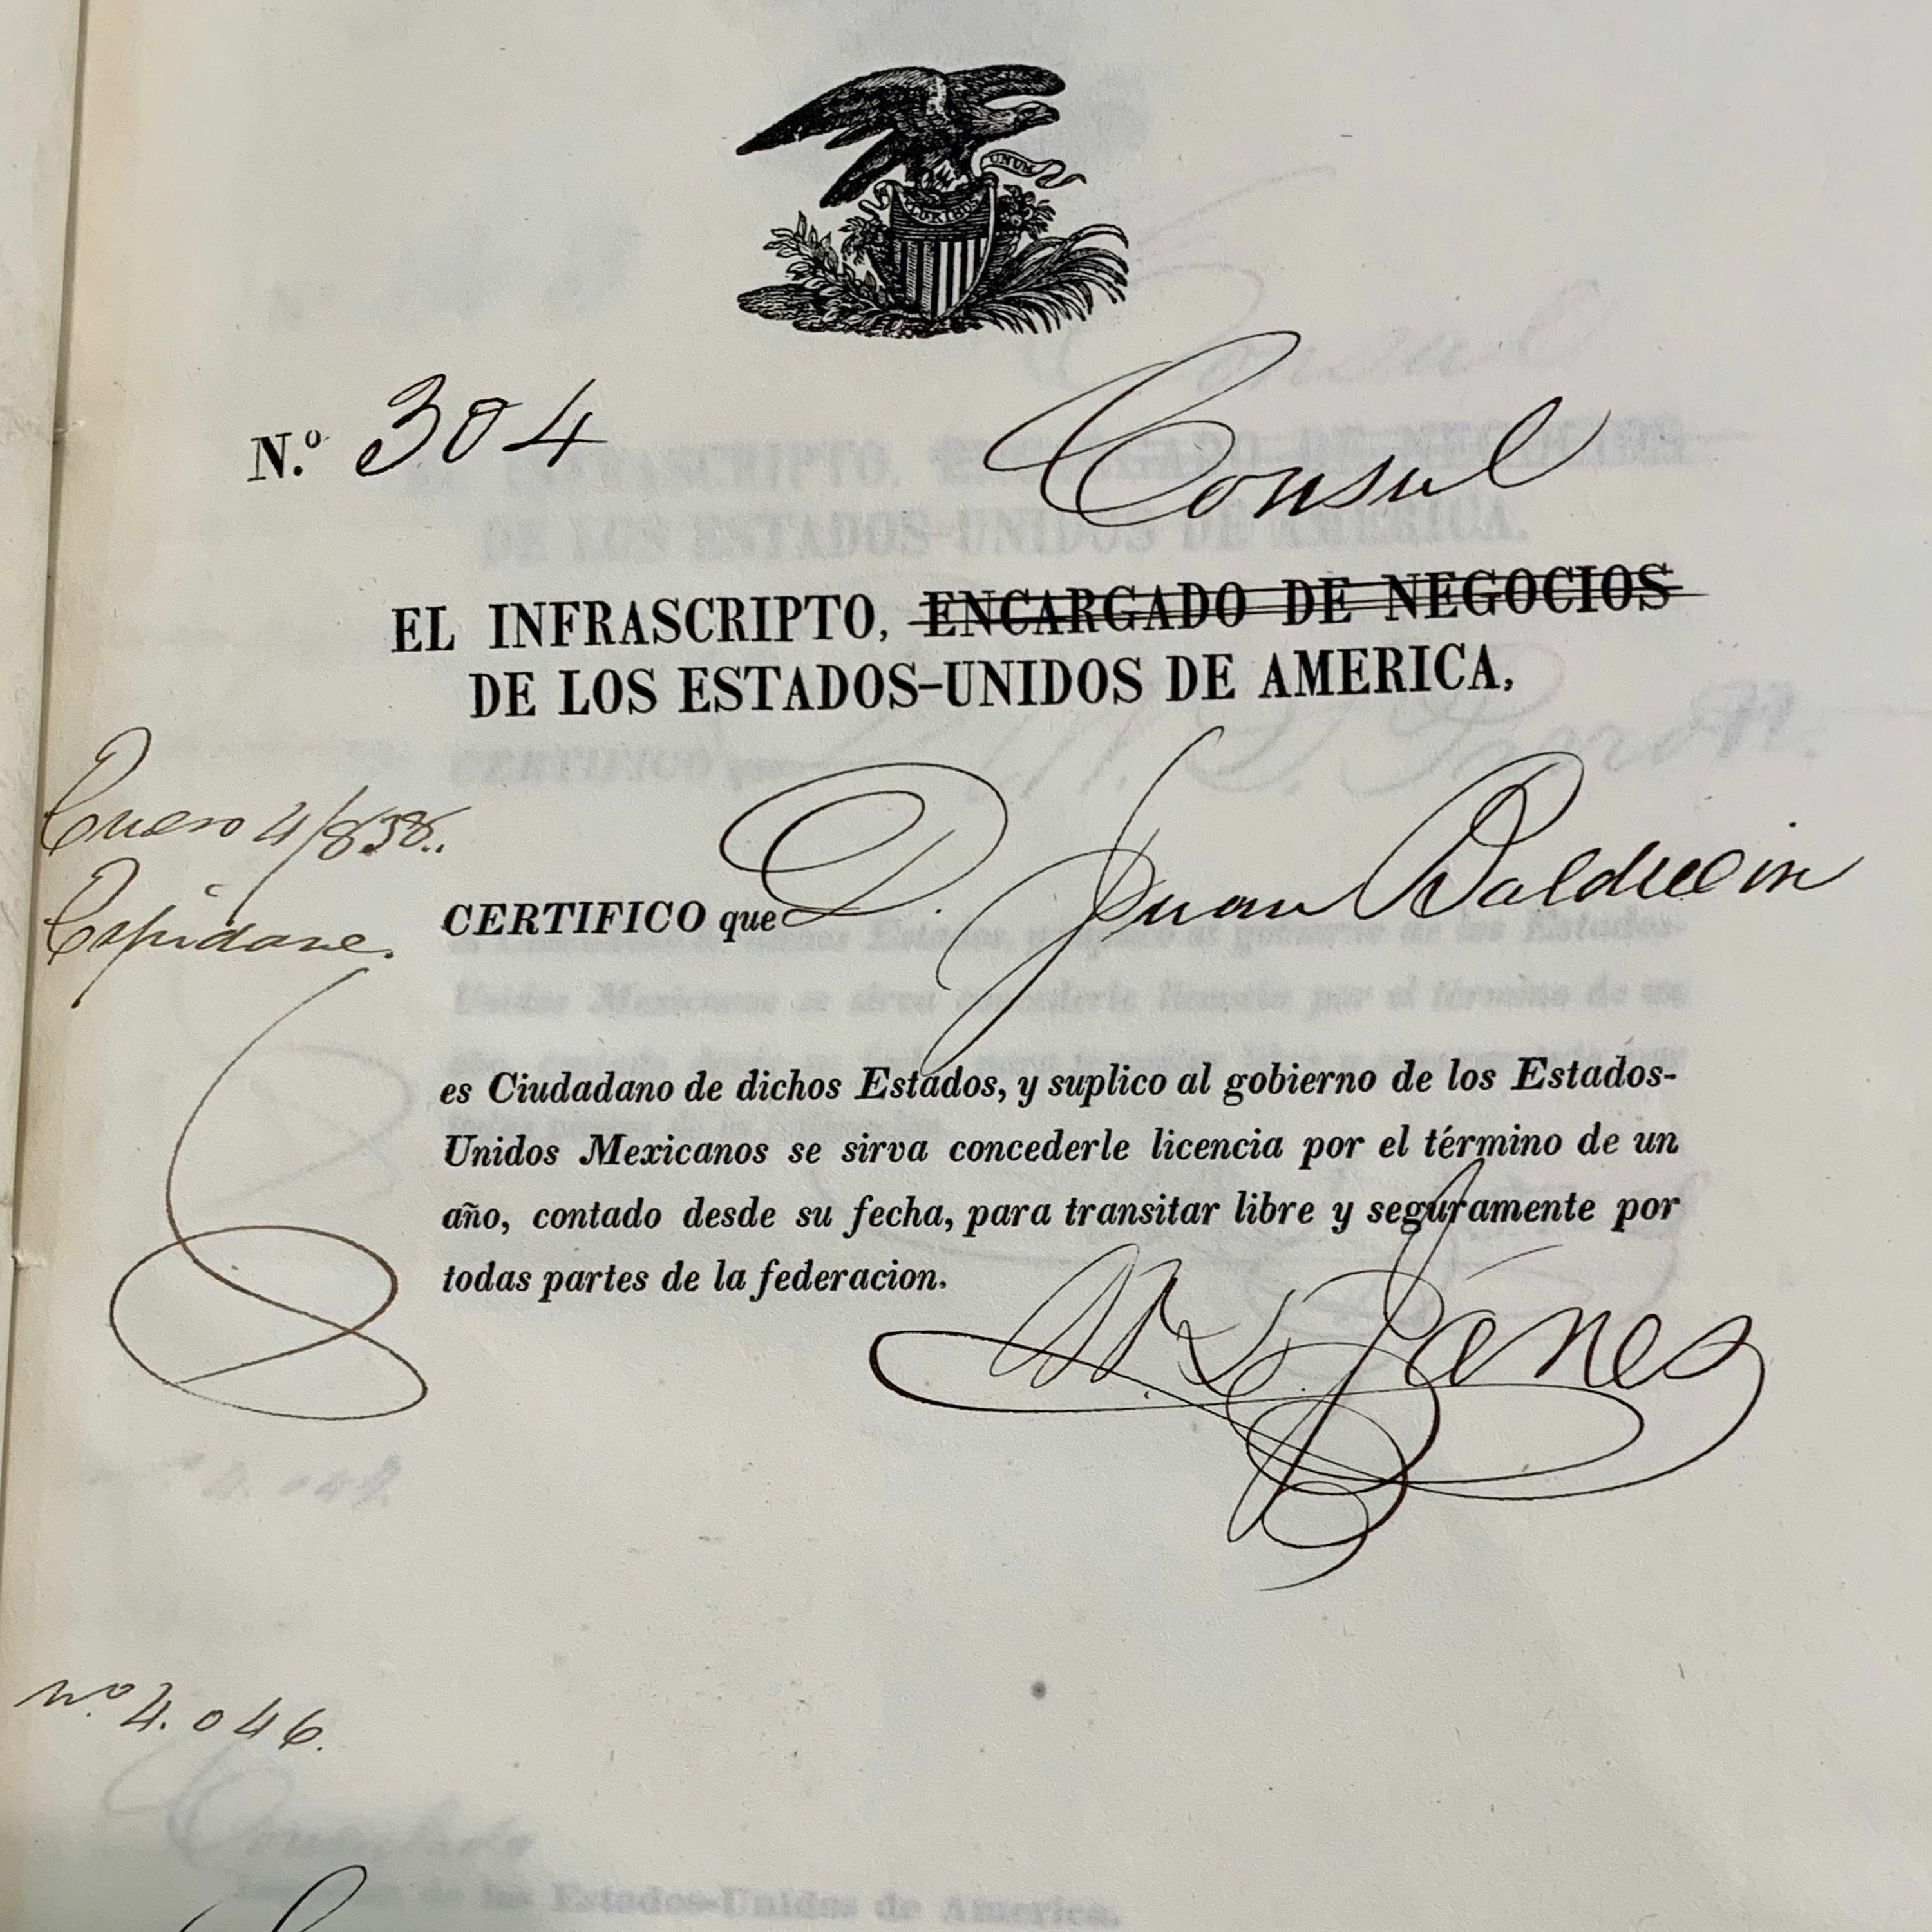 UNUM
PLURIBUS
N.º 304
Consul
EL INFRASCRIPTO, ENCARGADO DE NEGOCIOS
DE LOS ESTADOS-UNIDOS DE AMERICA,
Enero 4/838.
Espidase.
CERTIFICO que D. Juan Balduein
es Ciudadano de dichos Estados, y suplico al gobierno de los Estados-
Unidos Mexicanos se sirva concederle licencia por el término de un
año, contado desde su fecha, para transitar libre y seguramente por
todas partes de la federacion.
Jones
nº 4.046.